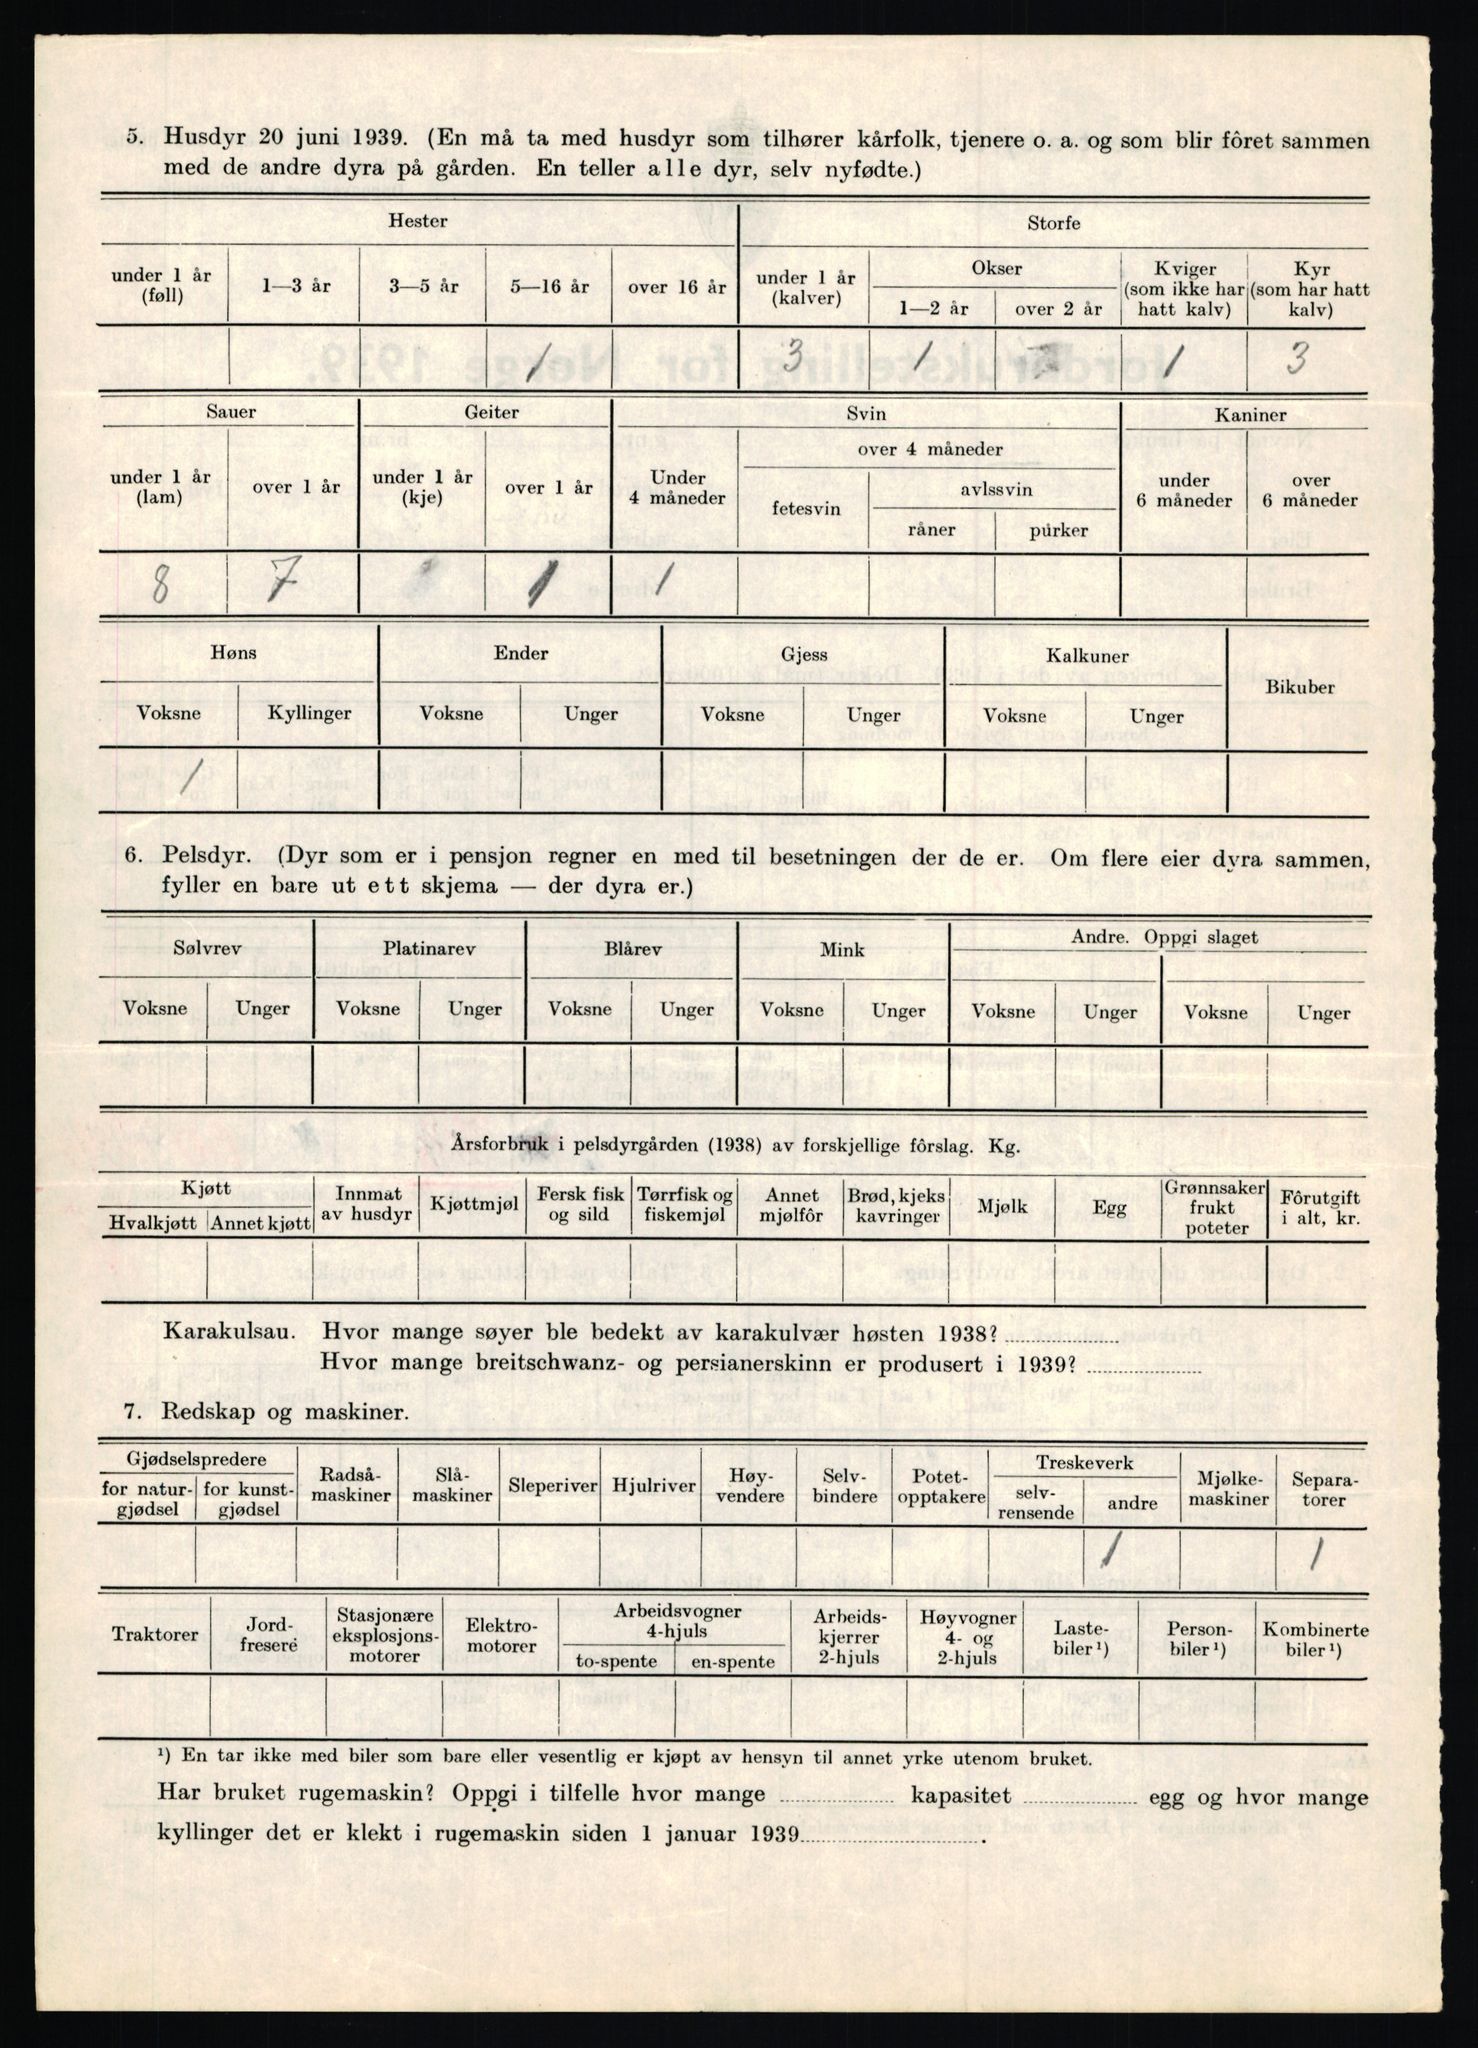 5. Husdyr 20 juni 1939. (En må ta med husdyr som tilhører kårfolk, tjenere o. a. og som blir fôret sammen
med de andre dyra på gården. En teller alle dyr, selv nyfødte.)
Hester Storfe
under 1 år (føll) 1—3 år 3—5 år 5—16 år over 16 år under 1 år (kalver) Okser 1—2 år over 2 år Kviger (som ikke har hatt kalv) Kyr (som har hatt kalv)
1 3 1 1 3
Sauer Geiter Svin Kaniner
under 1 år (lam) over 1 år under 1 år (kje) over 1 år Under 4 måneder over 4 måneder fetesvin avlssvin råner purker under 6 måneder over 6 måneder
8 7 1 1
Høns Ender Gjess Kalkuner Bikuber
Voksne Kyllinger Voksne Unger Voksne Unger Voksne Unger
1
6. Pelsdyr. (Dyr som er i pensjon regner en med til besetningen der de er. Om flere eier dyra sammen,
fyller en bare ut ett skjema — der dyra er.)
Sølvrev Platinarev Blårev Mink Andre. Oppgi slaget
Voksne Unger Voksne Unger Voksne Unger Voksne Unger Voksne Unger Voksne Unger
Årsforbruk i pelsdyrgården (1938) av forskjellige fôrslag. Kg.
Kjøtt Hvalkjøtt Annet kjøtt Innmat av husdyr Kjøttmjøl Fersk fisk og sild Tørrfisk og fiskemjøl Annet mjølfôr Brød, kjeks kavringer Mjølk Egg Grønnsaker frukt poteter Fôrutgift i alt, kr.
Karakulsau. Hvor mange søyer ble bedekt av karakulvær høsten 1938?
Hvor mange breitschwanz- og persianerskinn er produsert i 1939?
7. Redskap og maskiner.
Gjødselspredere for natur-gjødsel for kunst-gjødsel Radså-maskiner Slå-maskiner Sleperiver Hjulriver Høy-vendere Selv-bindere Potet-opptakere Treskeverk selv-rensende andre Mjølke-maskiner Separa-torer
1 1
Traktorer Jord-fresere Stasjonære eksplosjons-motorer Elektro-motorer Arbeidsvogner 4-hjuls to-spente en-spente Arbeids-kjerrer 2-hjuls Høyvogner 4- og 2-hjuls Laste-biler ¹) Person-biler ¹) Kombinerte biler ¹)
¹) En tar ikke med biler som bare eller vesentlig er kjøpt av hensyn til annet yrke utenom bruket.
Har bruket rugemaskin? Oppgi i tilfelle hvor mange kapasitet egg og hvor mange
kyllinger det er klekt i rugemaskin siden 1 januar 1939 .